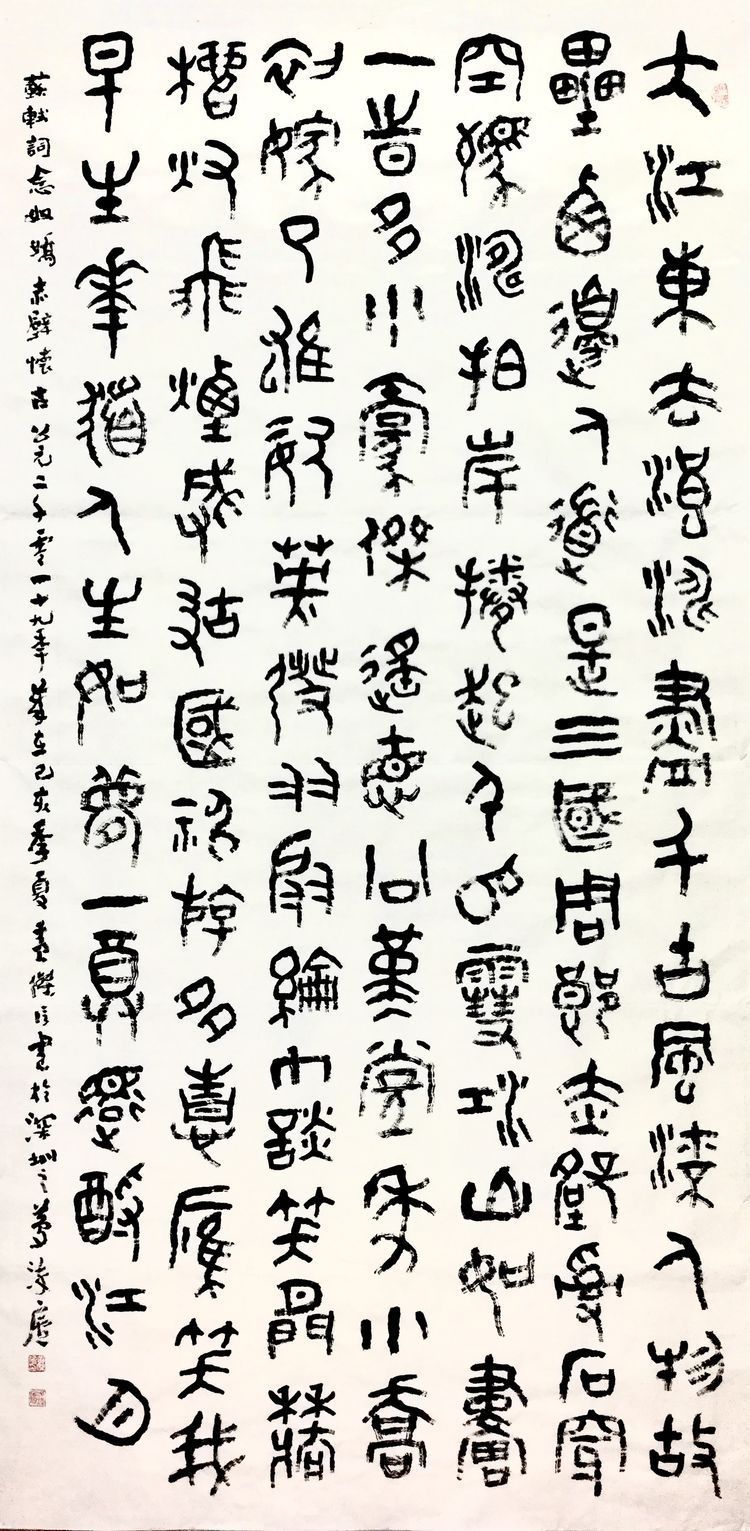 大江東去浪淘盡千古風流人物故
壘西邊人道是三國周郎赤壁亂石穿
空驚濤拍岸捲起千堆雪江山如畫
一時多少豪傑遙想公瑾當年小喬
初嫁了雄姿英發羽扇綸巾談笑間檣
櫓灰飛煙滅故國神遊多情應笑我
早生華髮人生如夢一尊還酹江月
蘇軾詞念奴嬌赤壁懷古公元二千零一十九年歲在己亥季夏傑臣書於深圳之